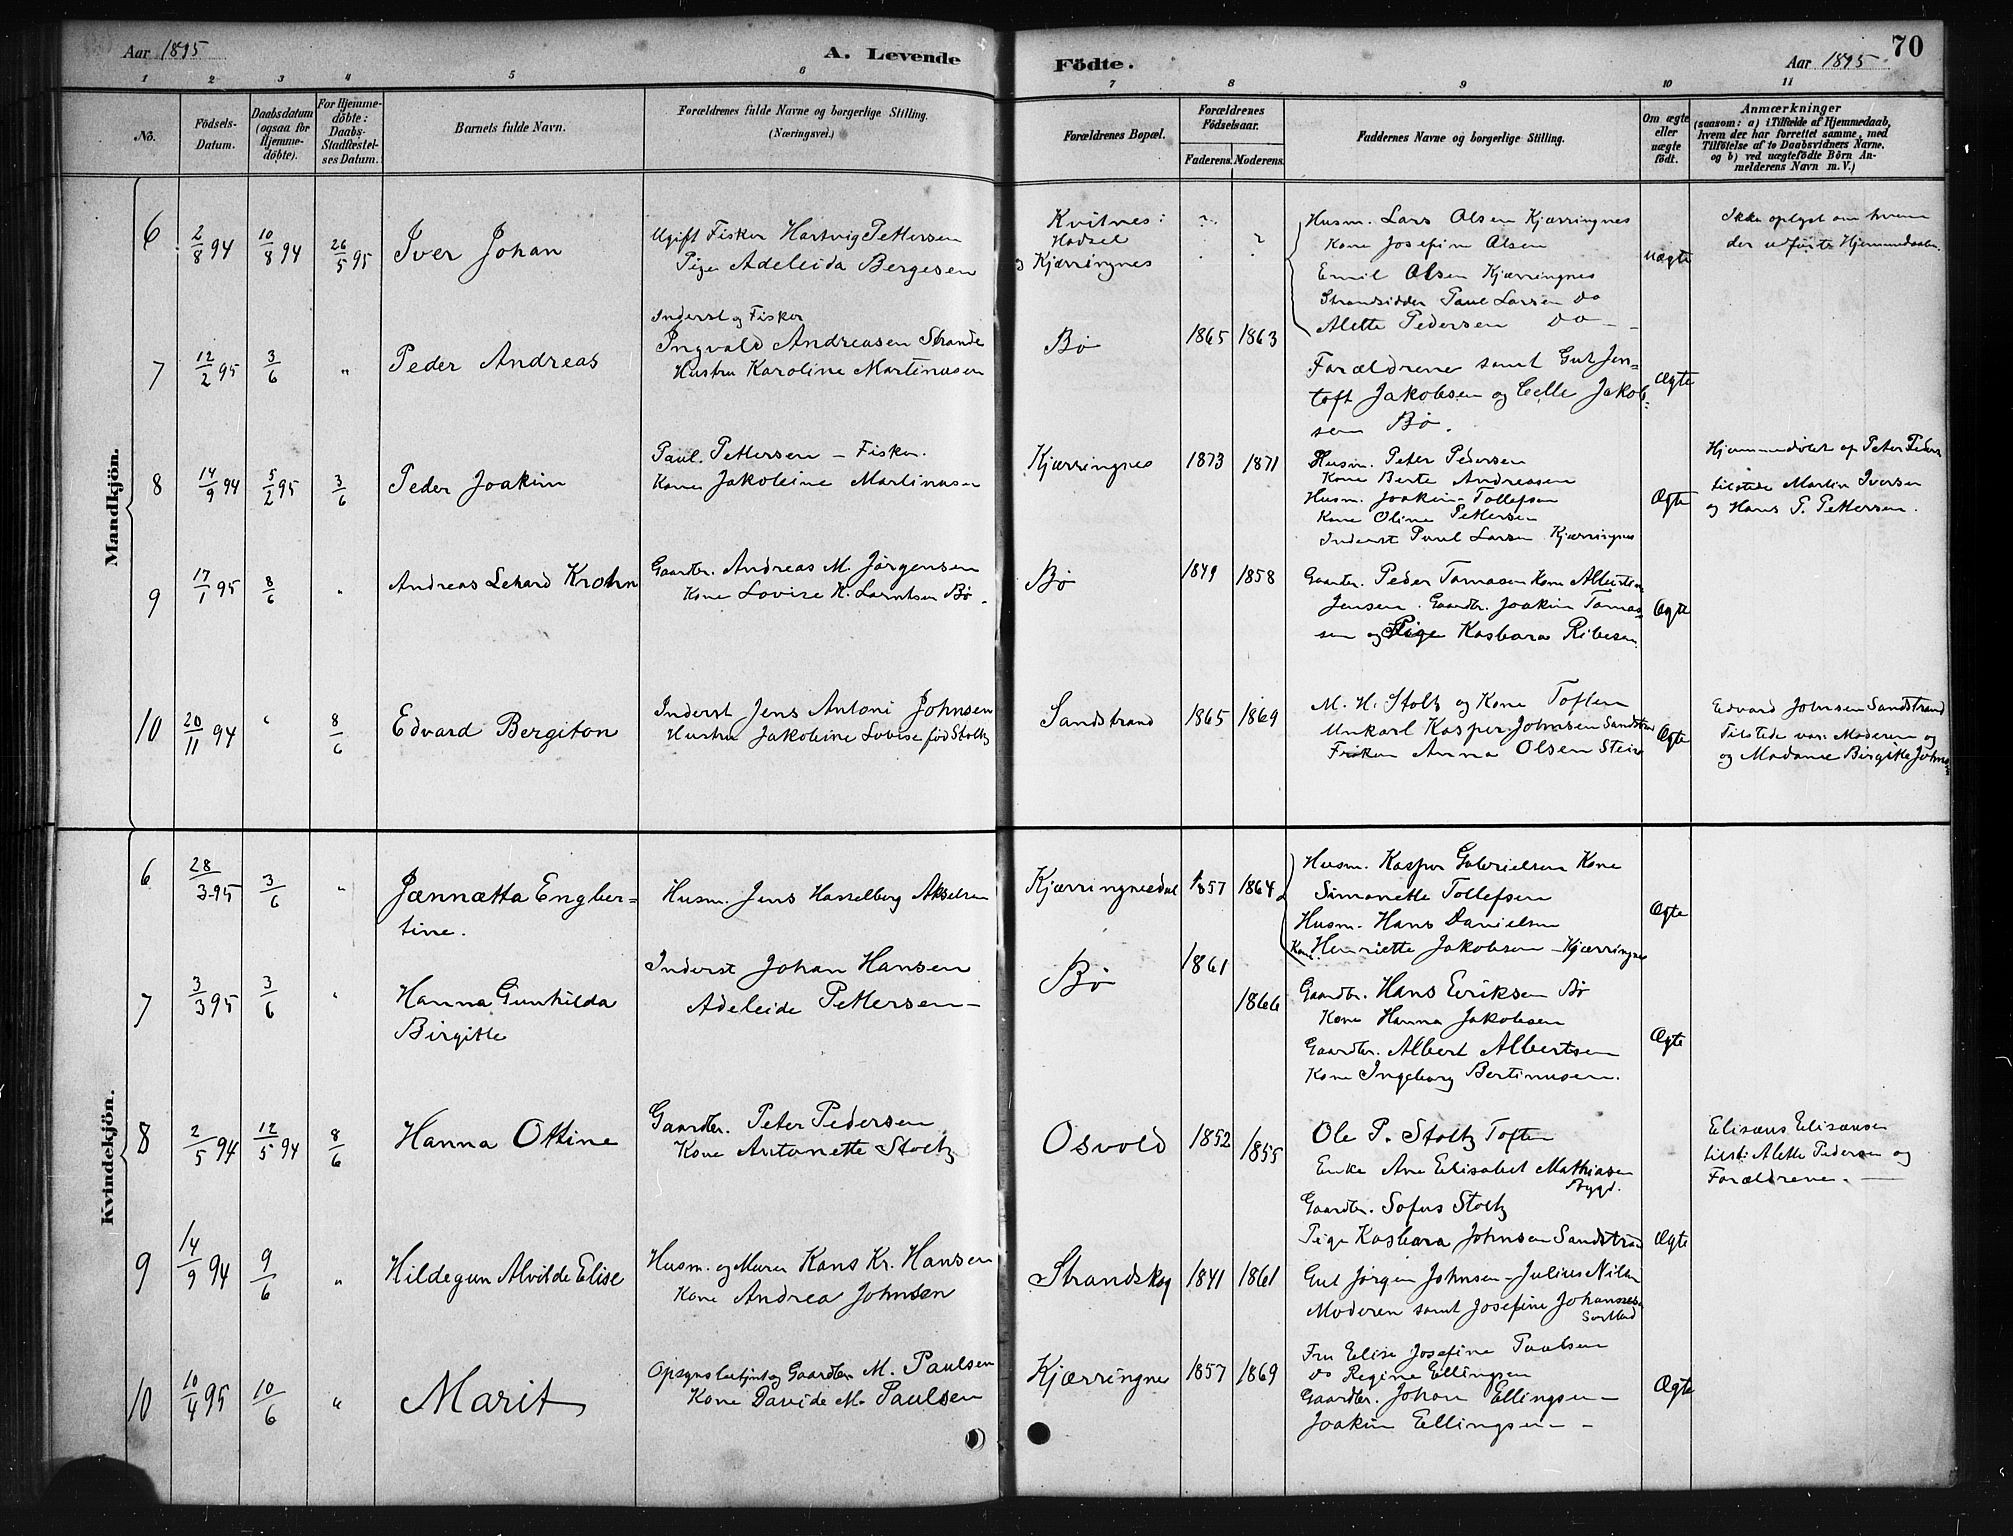 Aar 1895
A. Levende
Födte.
Aar 1895.
70
1 2 3 4 5 6 7 8 9 10 11
No.
Födsels-
Datum.
Daabsdatum
(ogsaa for
Hjemme-
döbte).
For Hjemme-
döbte:
Daabs-
Stadfæstel-
ses Datum.
Barnets fulde Navn.
Forældrenes fulde Navne og borgerlige Stilling.
(Næringsvei.)
Forældrenes Bopæl.
Forældrenes
Födselsaar.
Faderens. Moderens.
Faddernes Navne og borgerlige Stilling.
Om ægte
eller
uægte
födt.
Anmærkninger
(saasom: a) i Tilfælde af Hjemmedaab,
hvem der har forrettet samme, med
Tilföielse af to Daabsvidners Navne,
og b) ved uægtefödte Börn An-
melderens Navn m. V.)
Mandkjön.
6
2/8 94
10/8 94
26/5 95
Iver Johan
Ugift Fisker Hartvig Pettersen
Pige Adeleida Bergesen
Kvitnes
Hadsel
Kjærringnes
Husm. Lars Olsen Kjærringnes
Kone Josefine Olsen
Emil Olsen Kjærringnes
Strandsidder Paul Larsen Do
Alette Pedersen Do
uægte
Ikke oplyst om hvem
der udførte Hjemmedaaben.
7
12/2 95
3/6
"
Peder Andreas
Inderst og Fisker
Ingvald Andreasen Strande
Hustru Karoline Martinusen
Bø
1865 1863
Forældrene samt Gut Jen-
toft Jakobsen og Celle Jakob-
sen Bø.
Ægte
8
14/9 94
5/2 95
3/6
Peder Joakim
Paul Pettersen - Fisker.
Kone Jakobine Martinusen
Kjærringnes
1873 1871
Husm. Peter Pedersen
Kone Berte Andreasen
Husm. Joakim Tollefsen
Kone Oline Pettersen
Inderst Paul Larsen Kjærringnes
Ægte
Hjemmedøbt af Peter Peders
tilstede Martin Iversen
og Hans P. Pettersen.
9
17/1 95
8/6
"
Andreas Lehard Krohn
Gaardbr. Andreas M. Jørgensen
Kone Lovise K. Larntsen Bø.
Bø
1849 1858
Gaardbr. Peder Tomasen Kone
Jensen. Gaardbr. Joakim Tomas-
sen og Pige Kasbara Ribesen.
Ægte
10
20/11 94
"
8/6
Edvard Bergiton
Inderst Jens Antoni Johnsen
Hustru Jakobine Lovise fød Stoltz
Sandstrand
1865 1869
M. H. Stoltz og Kone Toften
Unkarl Kasper Johnsen Sandstrand
Anna Olsen Steiro
Ægte
Edvard Johnsen Sandstrand
Tilstede var Moderen og
og Madame Birgitte Johnsen
Kvindekjön.
6
28/3 95
3/6
"
Jænnætta Engber-
tine.
Husm. Jens Hasselberg Akselsen
Kjærringnesdal
1857 1864
Husm. Kasper Gabrielsen Kone
Simonette Tollefsen
Husm. Hans Danielsen
Kone Henriette Jakobsen - Kjærringnes
Ægte
7
3/3 95
3/6
"
Hanna Gunhilda
Birgitte
Inderst Johan Hansen
Adeleide Pettersen -
Bø
1861
1866
Gaardbr. Hans Eriksen Bø
Kone Hanna Jakobsen
Gaardbr. Albert Albertsen
Kone Ingeborg Bertinusen.
Ægte
8
2/5 94
12/5 94
8/6
Hanna Ottine
Gaardbr. Peter Pedersen
Kone Antonette Stoltz
Osvold
1852
1855
Ole P. Stoltz Toften
Enke Ane Elisabet Mathiasen
Bygd.
Gaardbr. Sofus Stoltz
Pige Kasbara Johnsen Sandstrand
Ægte
Elisæus Elisæusen
tilst: Alette Pedersen og
Forældrene. -
9
14/9 94
9/6
"
Hildegun Alvilde Elise
Husm. og Murer Hans Kr. Hansen
Kone Andrea Johnsen
Strandskog
1841 1861
Gut Jørgen Johnsen - Julius Nilsen
Moderen samt Josefine Johannesen
Sortland
10
10/4 95
10/6
"
Marit
Opsynsbetjent og Gaardbr. M. Paulsen
Kone Davide M. Paulsen
Kjærringnes
1857 1869
Fru Elise Josefine Paulsen
Do Regine Ellingsen
Gaardbr. Johan Ellingsen -
Joakim Ellingsen -
Ægte